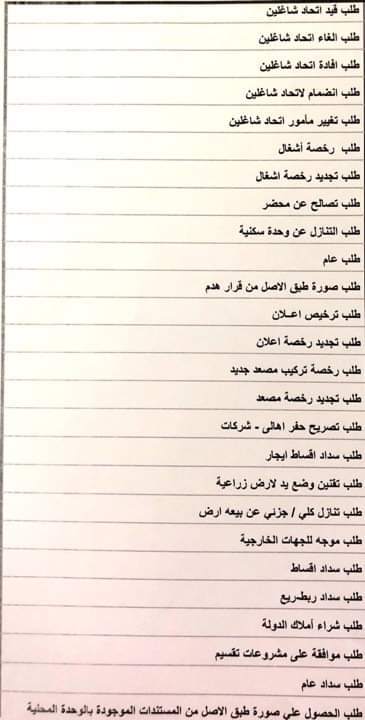 طلب قيد اتحاد شاغلين
طلب الغاء اتحاد شاغلين
طلب افادة اتحاد شاغلين
طلب انضمام لاتحاد شاغلين
طلب تغيير مأمور اتحاد شاغلين
طلب رخصة أشغال
طلب تجديد رخصة اشغال
طلب تصالح عن محضر
طلب التنازل عن وحدة سكنية
طلب عام
طلب صورة طبق الاصل من قرار هدم
طلب ترخيص اعـلان
طلب تجديد رخصة اعلان
طلب رخصة تركيب مصعد جديد
طلب تجديد رخصة مصعد
طلب تصريح حفر اهالى - شركات
طلب سداد اقساط ايجار
طلب تقنين وضع يد لارض زراعية
طلب تنازل كلي / جزئي عن بيعه ارض
طلب موجه للجهات الخارجية
طلب سداد اقساط
طلب سداد ربط-ريع
طلب شراء أملاك الدولة
طلب موافقة على مشروعات تقسيم
طلب سداد عام
طلب الحصول على صورة طبق الاصل من المستندات الموجودة بالوحدة المحلية